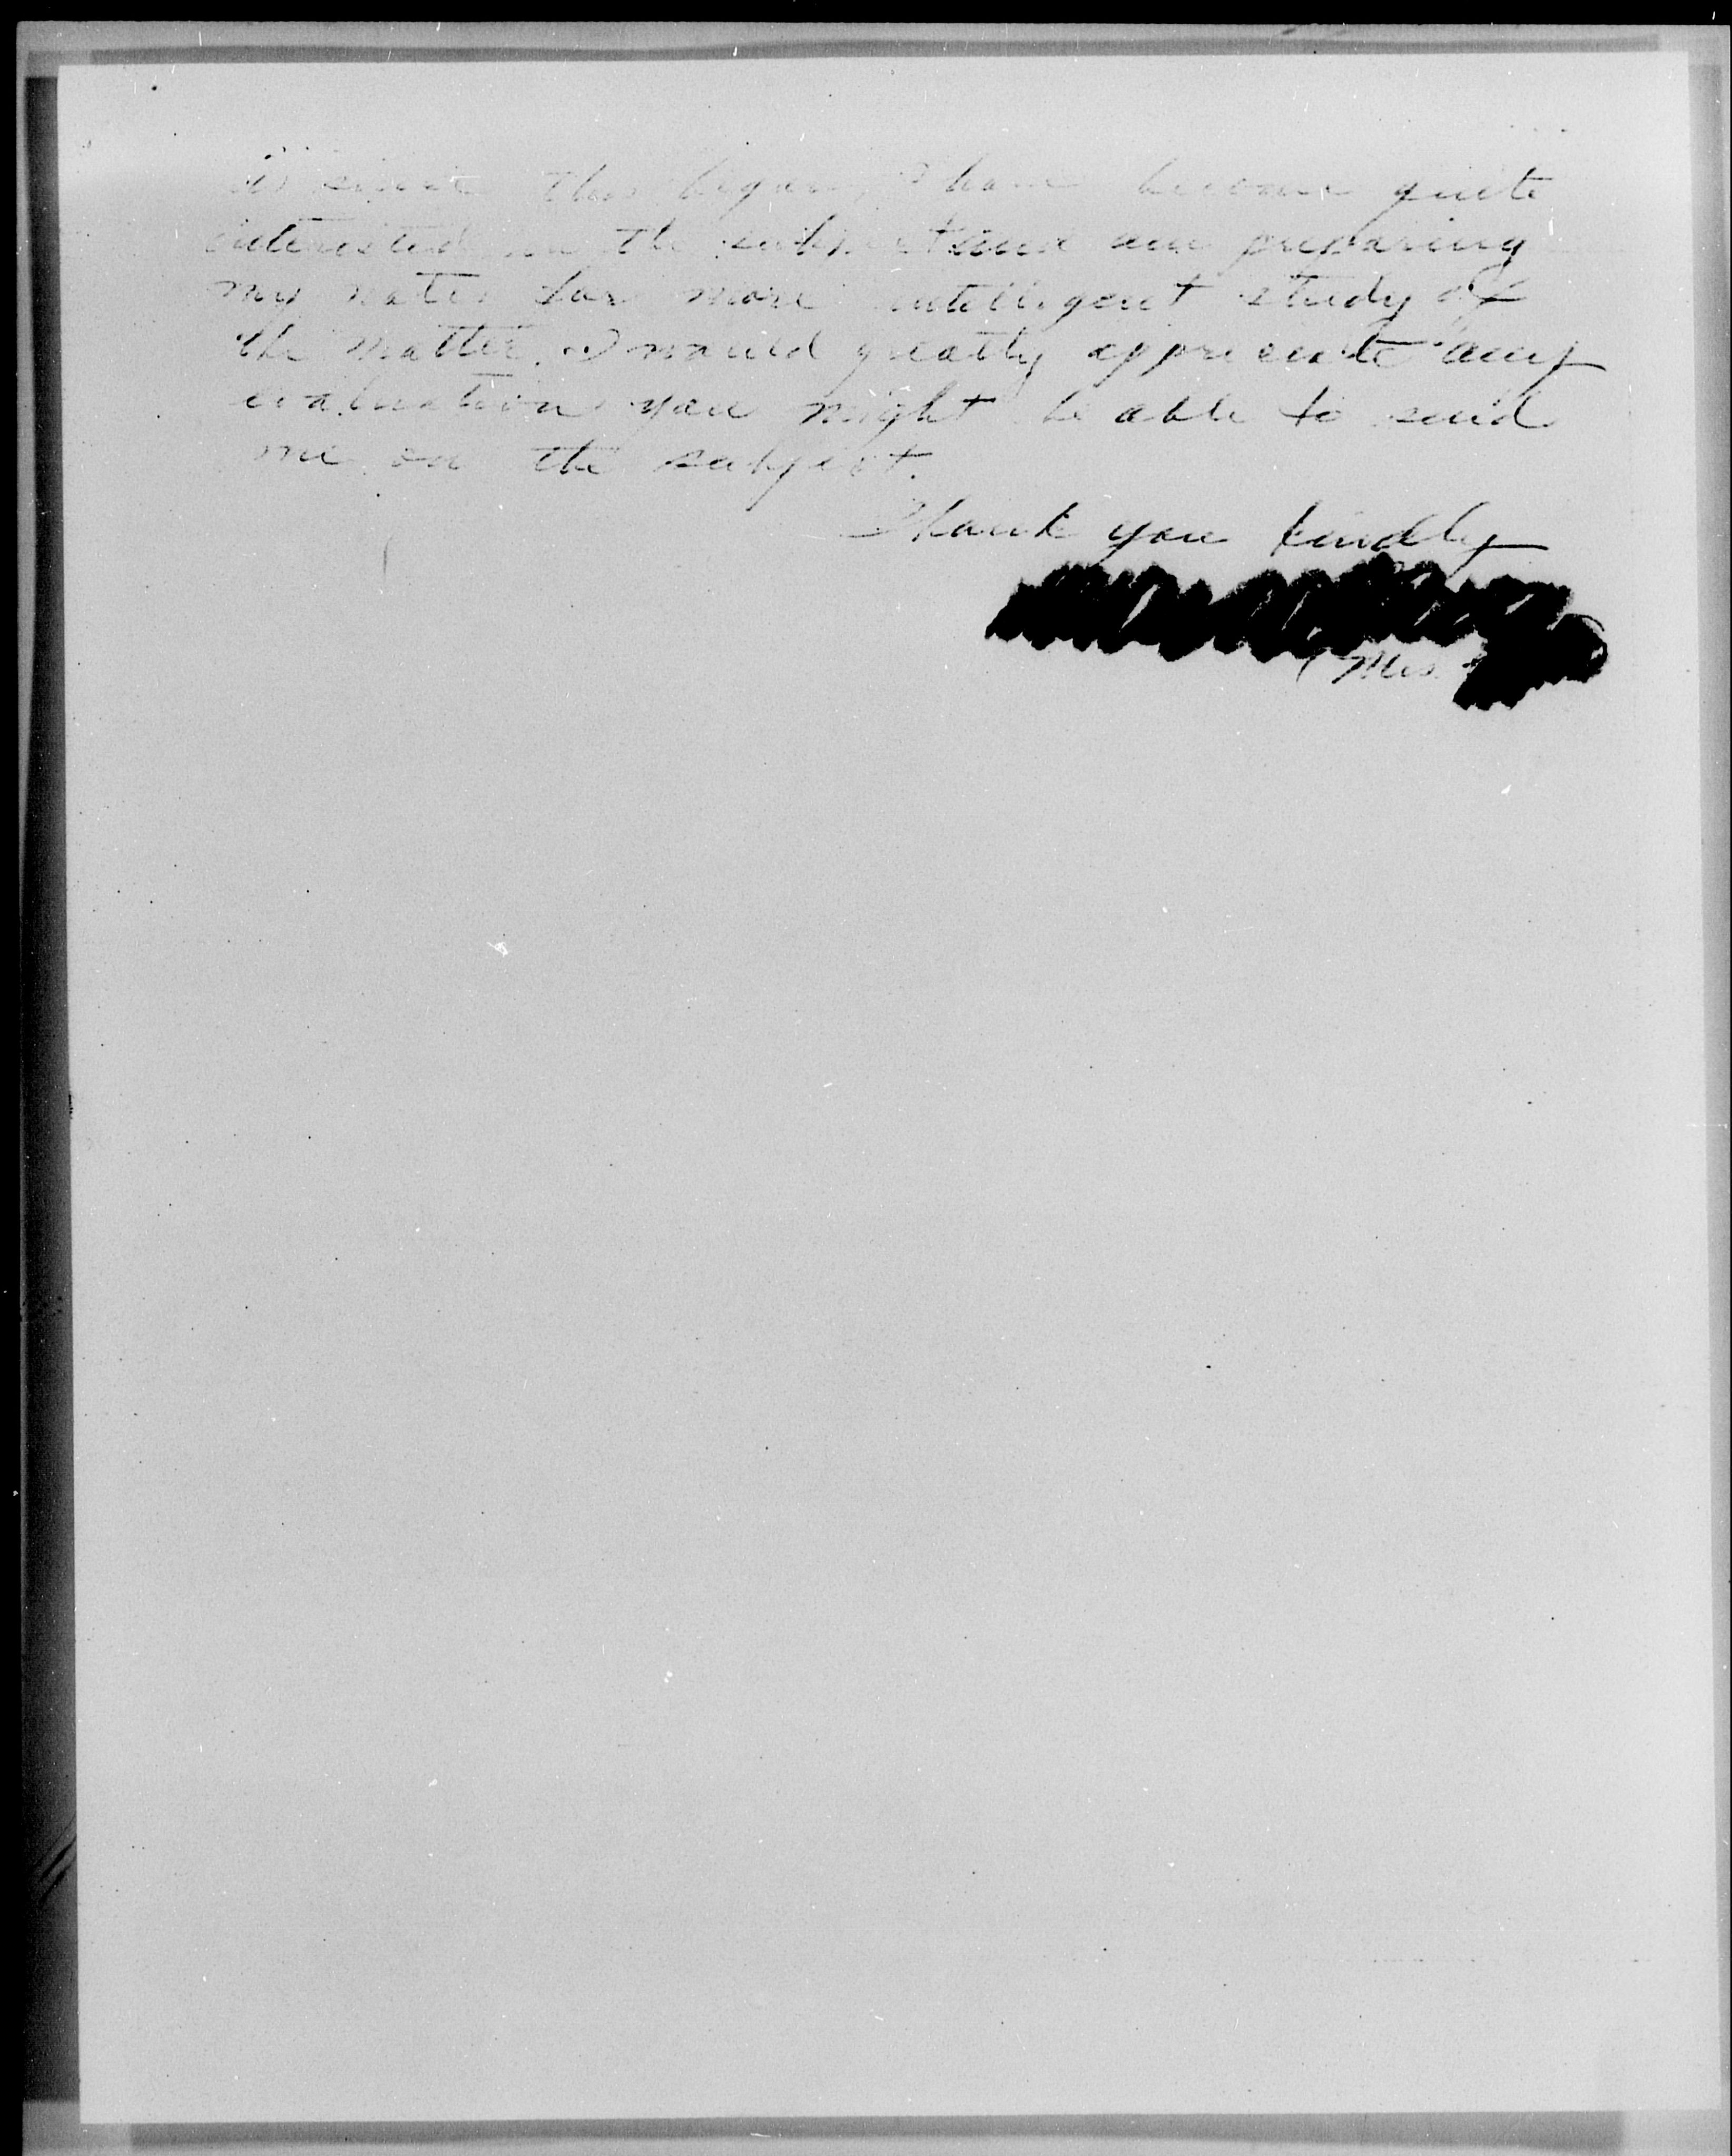 since this began, I have become quite
interested in the subject and am preparing
my notes for more intelligent study of
the matter. I would greatly appreciate any
evaluation you might be able to send
me on the subject.
Thank you kindly
(Mrs.